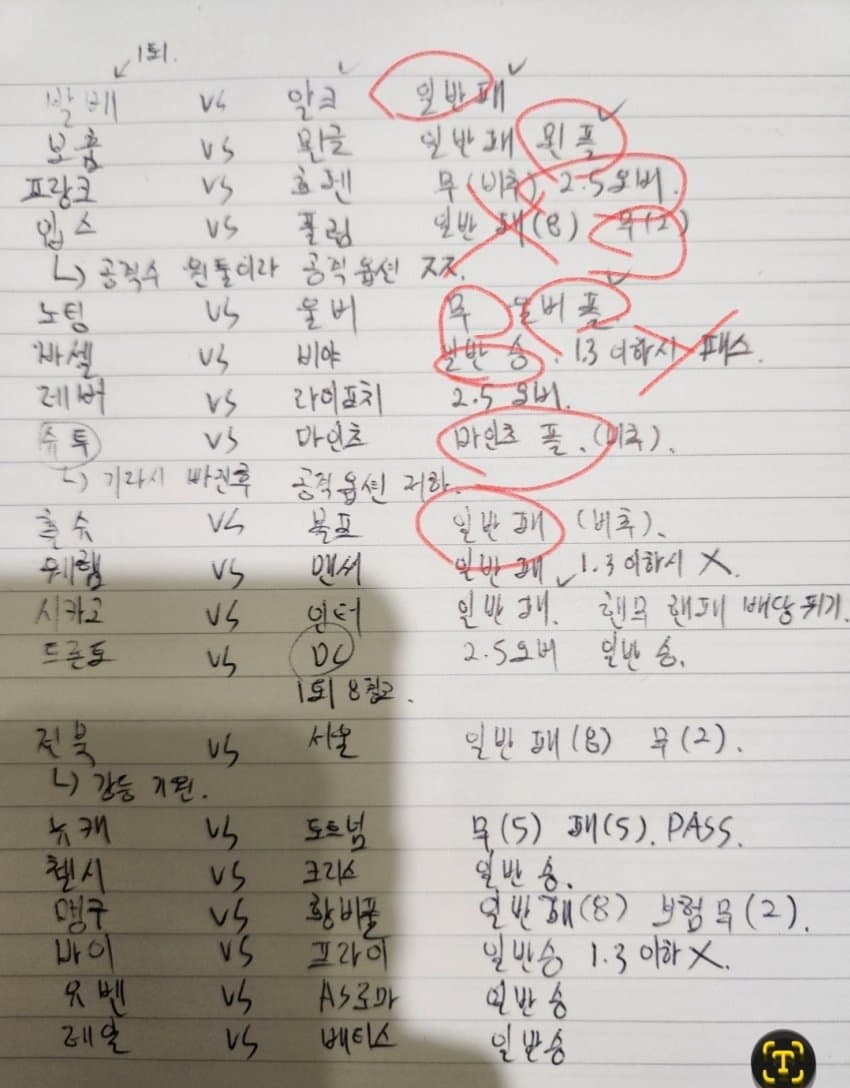 1퇴.
발베 vs 알크 일반패
보훔 vs 묀글 일반패 묀플
프랑크 vs 호펜 무(비추). 2.5오버.
입스 vs 풀럼 일반 패(8) 무(2)
ㄴ) 공격수 원톱이라 공격옵션 ㅈㅈ.
노팅 vs 울버 무 울버 플
바셀 vs 비야 일반 승. 1.3 이하시 패스.
레버 vs 라이프치 2.5 오버.
슈투 vs 마인츠 마인츠 플. (비추).
ㄴ) 기라시 빠진후 공격옵션 저하.
홀슈 vs 볼프 일반패 (비추).
웨햄 vs 맨시 일반패 1.3 이하시 X.
시카고 vs 인터 일반패. 핸무 핸패 배당 튀기.
토론토 vs DC 2.5오버 일반 승.
1퇴 8참고.
전북 vs 서울 일반 패(8) 무(2).
ㄴ) 강등 지원.
뉴캐 vs 토트넘 무(5) 패(5). PASS.
첼시 vs 크리스 일반 승.
맹구 vs 황비풀 일반패(8) 보험 무(2).
바이 vs 프라이 일반승 1.3 이하 X.
유벤 vs AS로마 일반승
레알 vs 베티스 일반승